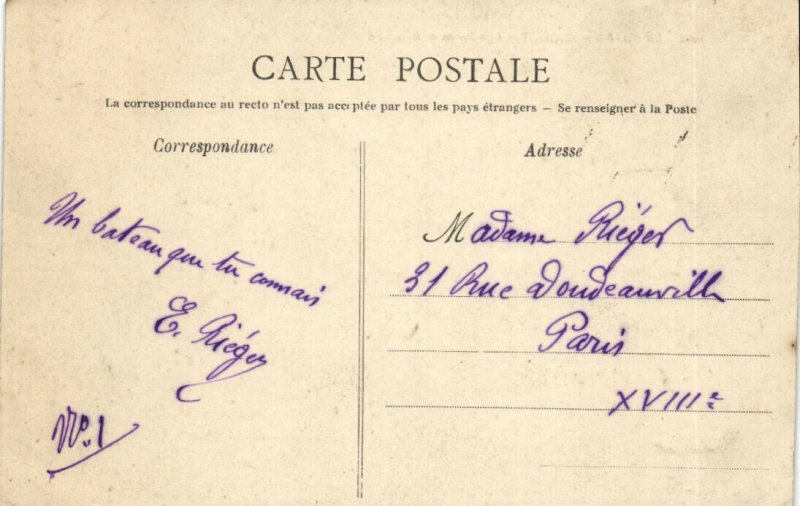 CARTE POSTALE
La correspondance au recto n'est pas acceptée par tous les pays étrangers — Se renseigner à la Poste
Correspondance
Un bateau que tu connais
E. Riéger
No. 1
Adresse
Madame Riéger
31 Rue Doudeauville
Paris
XVIIIe